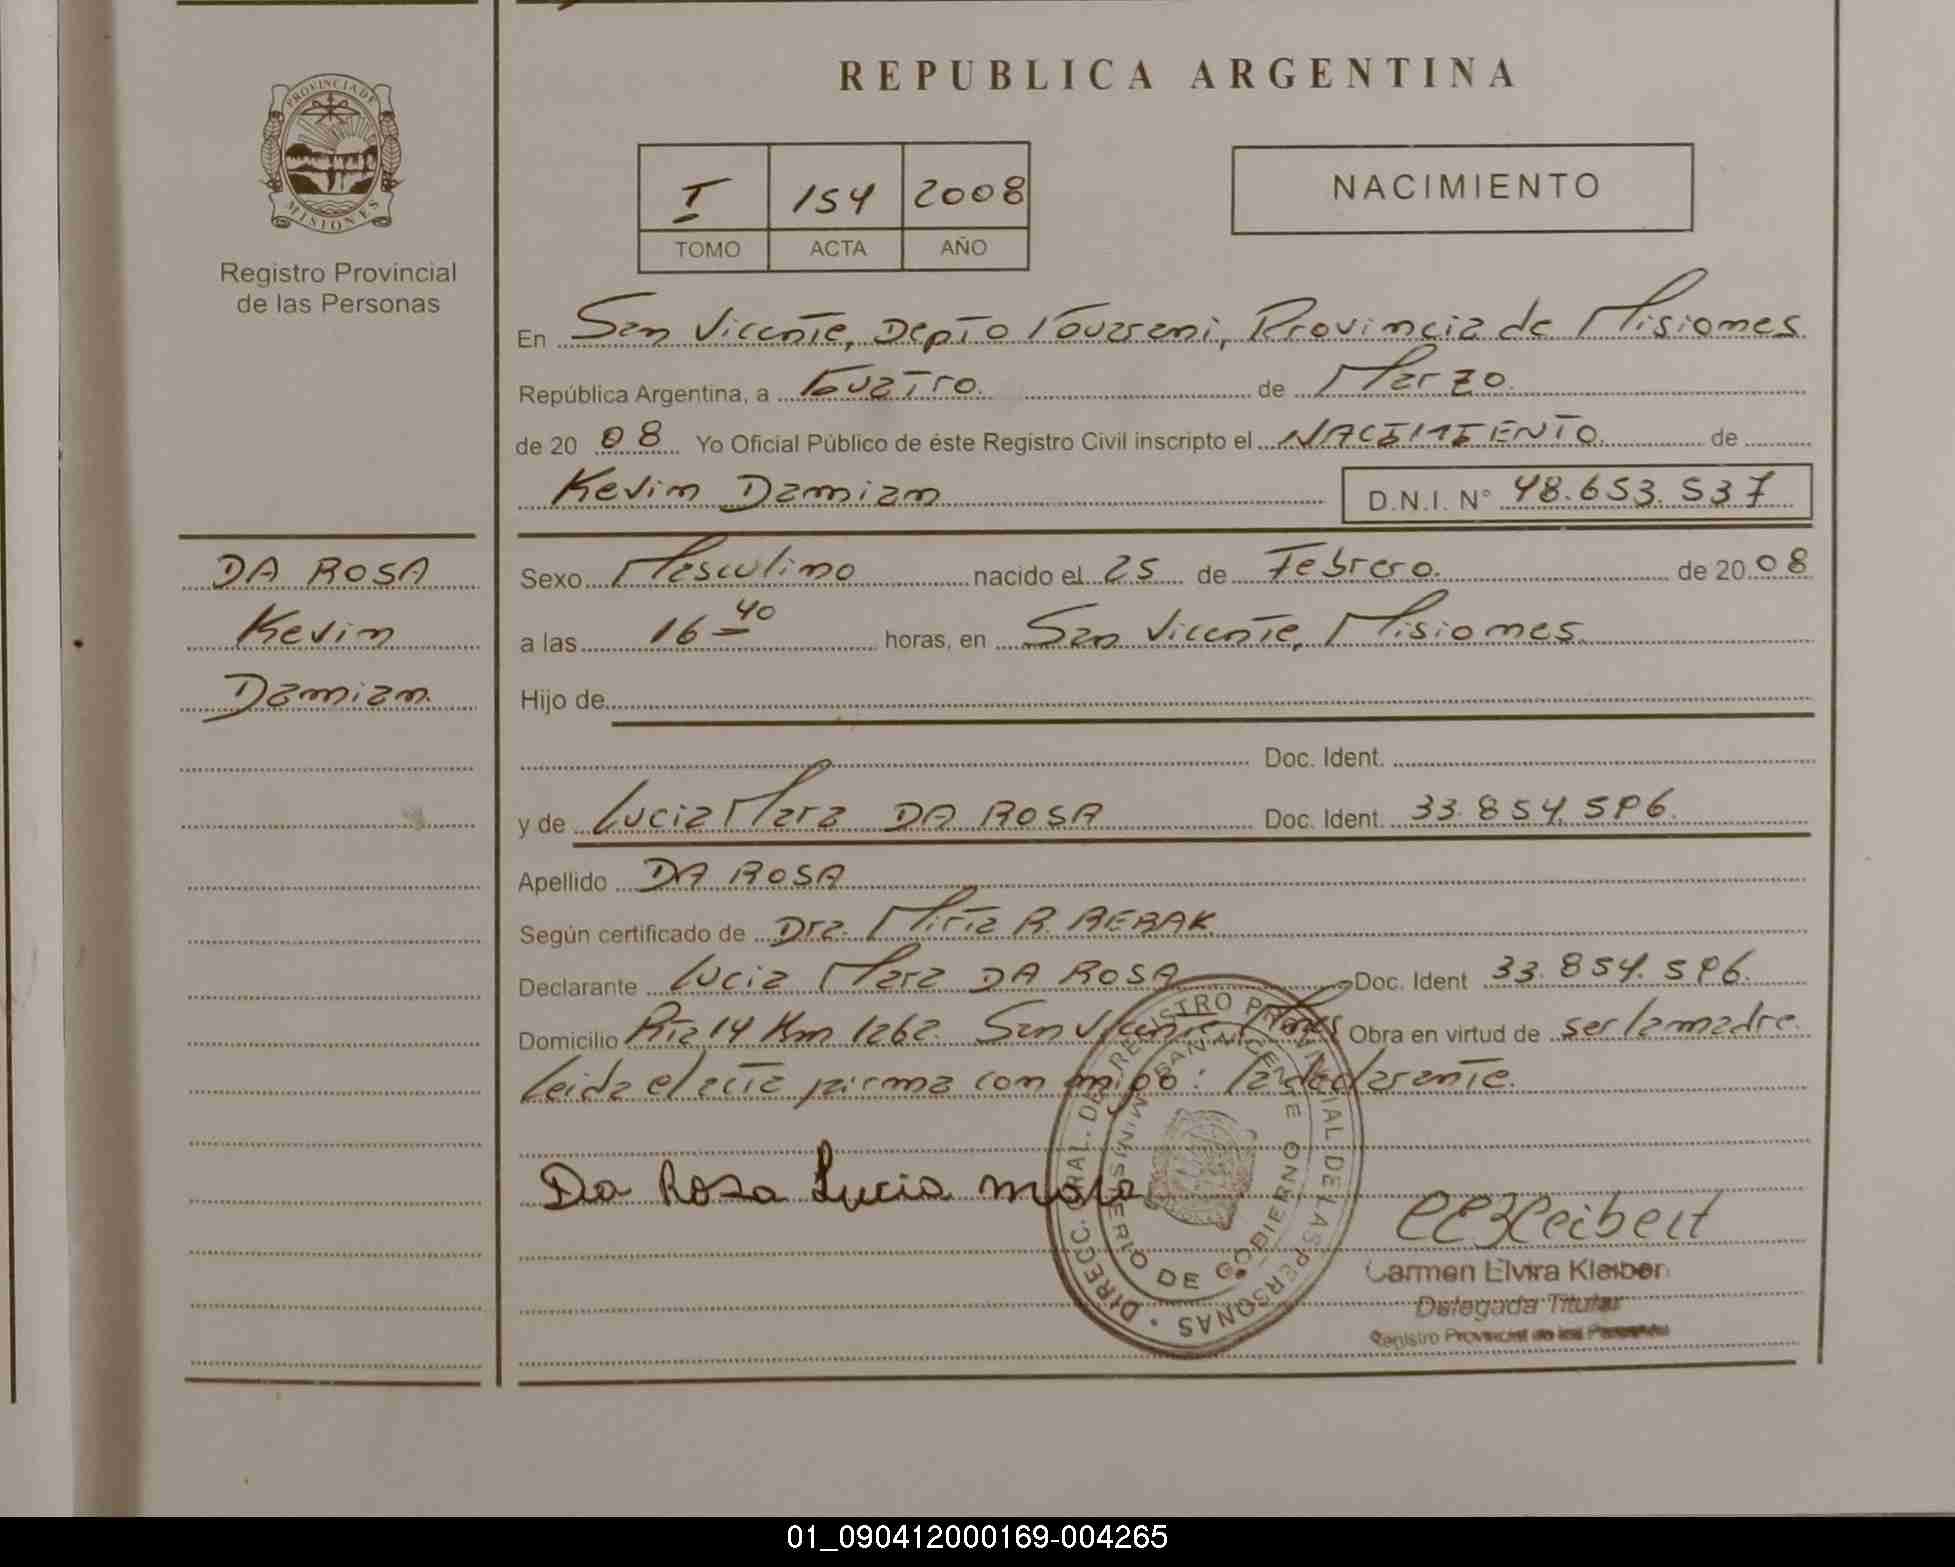 REPUBLICA ARGENTINA
PROVINCIA DE
MISIONES
Registro Provincial
de las Personas
I 154 2008
TOMO ACTA AÑO
NACIMIENTO
En San Vicente, Depto Guarani, Provincia de Misiones
República Argentina, a Cuatro. de Marzo.
de 20 08 Yo Oficial Público de éste Registro Civil inscripto el NACIMIENTO de
Kevin Damian D.N.I. N° 48.653.537
DA ROSA
Kevin
Damian.
Sexo Masculino nacido el 25 de Febrero. de 20 08
a las 16 40 horas, en San Vicente, Misiones.
Hijo de
Doc. Ident.
y de Lucia Mara DA ROSA Doc. Ident. 33.854.596.
Apellido DA ROSA
Según certificado de Dra. Mirta R. REBAK
Declarante Lucia Mara DA ROSA Doc. Ident 33.854.596.
Domicilio Rta 14 Km 1262. San Vicente Mnes Obra en virtud de ser la madre.
Leida el acta firma con migo: la declarante.
Da Rosa Lucia mara
DIRECC. GRAL. DEL REGISTRO PROVINCIAL DE LAS PERSONAS
SAN VICENTE
MINISTERIO DE GOBIERNO
CEKleibert
Carmen Elvira Kleiber
Delegada Titular
Registro Provincial de las Personas
01_090412000169-004265